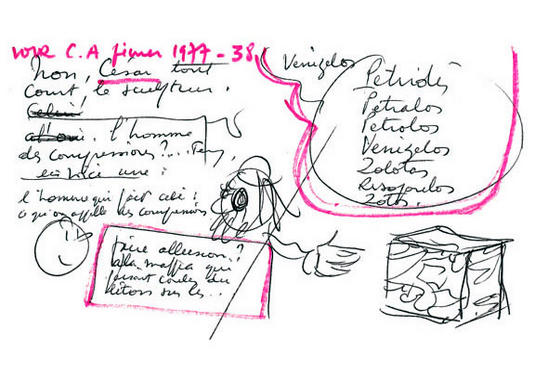 VOIR C.A figner 1977 - 38
Non, César tout
court, le sculpteur.
Celui
l'homme
des compressions?... Tiens,
en voici une :
l'homme qui fait cela :
ce qu'on appelle les compressions
Venizelos
Petridis
Petralos
Petrolos
Venizelos
Zolotas
Risopoulos
Zotos.
Faire allusion?
à la maffia qui
faisait couler du
béton sur les...